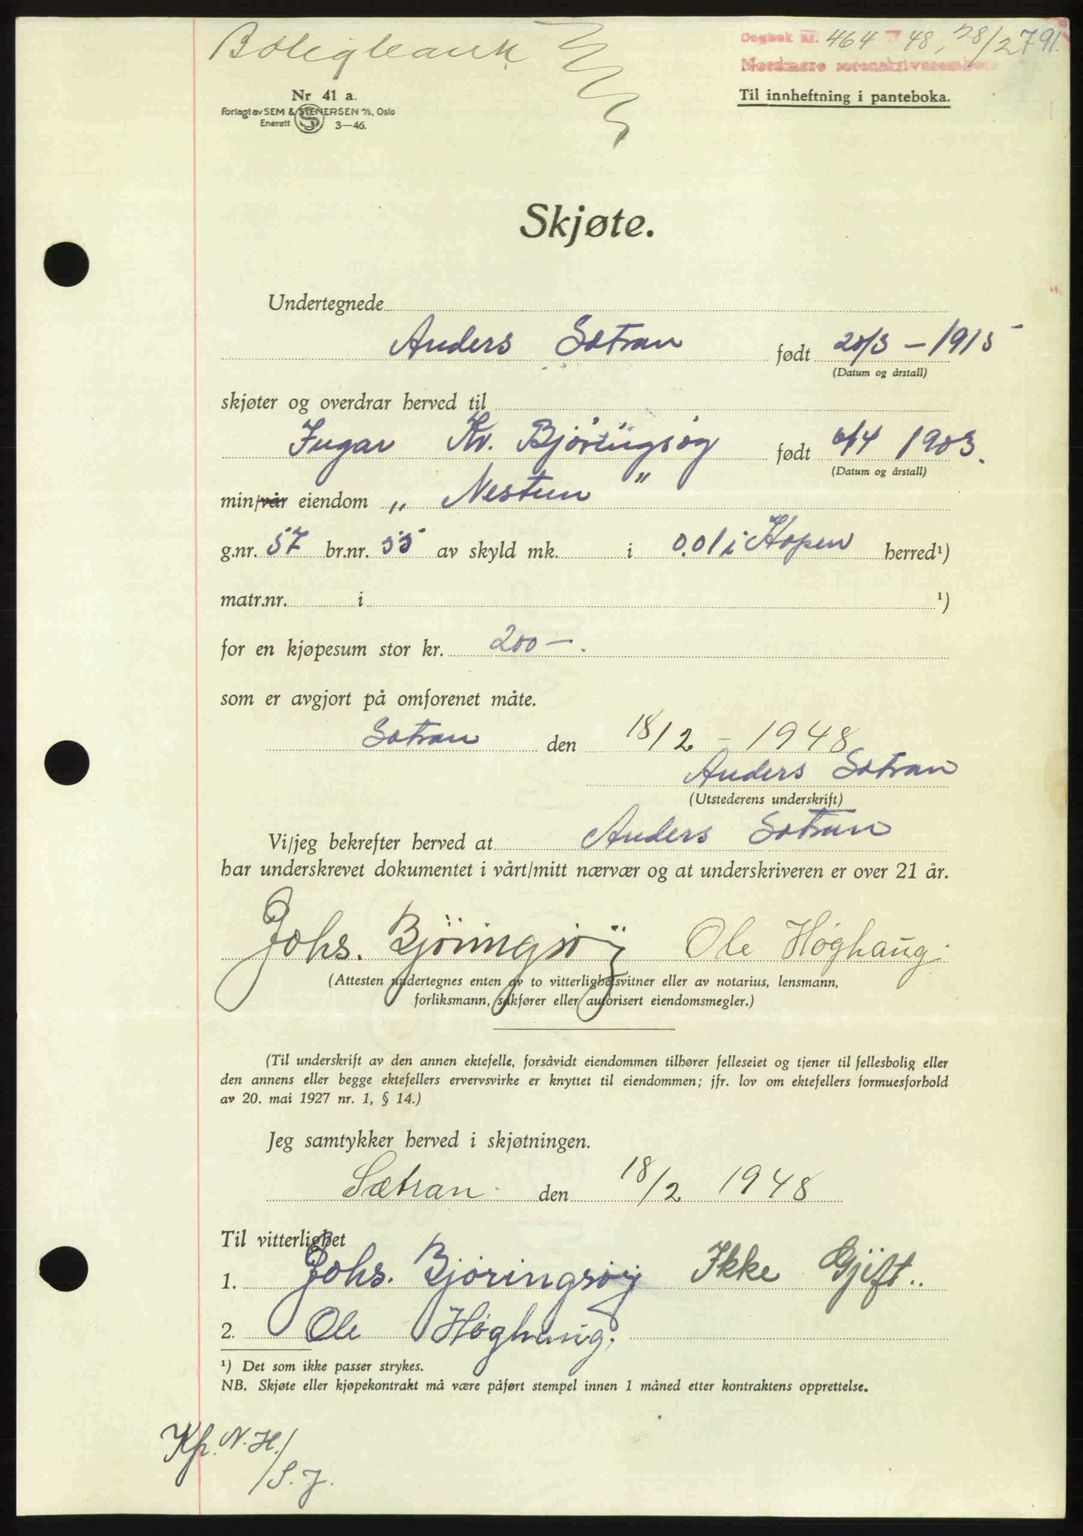 Boligbank
Dagbok nr. 464 48, 28/2 791.
Nordmøre sorenskriverembete
Til innheftning i panteboka.
Nr 41 a.
Forlagt av SEM & STENERSEN A/S, Oslo
Enerett 3—46.
Skjøte.
Undertegnede
Anders Sætran født 20/3 - 1915
(Datum og årstall)
skjøter og overdrar herved til
Ingar Kr. Bjøringsøy født 6/4 1903.
(Datum og årstall)
min/vår eiendom „ Nestun "
g.nr. 57 br.nr. 55 av skyld mk. i 0.01 i Hopen herred¹)
matr.nr. i ¹)
for en kjøpesum stor kr. 200 —.
som er avgjort på omforenet måte.
Sætran den 18/2 - 1948
Anders Sætran
(Utstederens underskrift)
Vi/jeg bekrefter herved at Anders Sætran
har underskrevet dokumentet i vårt/mitt nærvær og at underskriveren er over 21 år.
Johs. Björingsöy Ole Høghaug.
(Attesten undertegnes enten av to vitterlighetsvitner eller av notarius, lensmann,
forliksmann, sakfører eller autorisert eiendomsmegler.)
(Til underskrift av den annen ektefelle, forsåvidt eiendommen tilhører felleseiet og tjener til fellesbolig eller
den annens eller begge ektefellers ervervsvirke er knyttet til eiendommen; jfr. lov om ektefellers formuesforhold
av 20. mai 1927 nr. 1, § 14.)
Jeg samtykker herved i skjøtningen.
Sætran. den 18/2 1948
Til vitterlighet
1. Johs. Bjøringsøy Ikke Gjift..
2. Ole Høghaug.
¹) Det som ikke passer strykes.
NB. Skjøte eller kjøpekontrakt må være påført stempel innen 1 måned etter kontraktens opprettelse.
Kp. N. H./
/S. J.